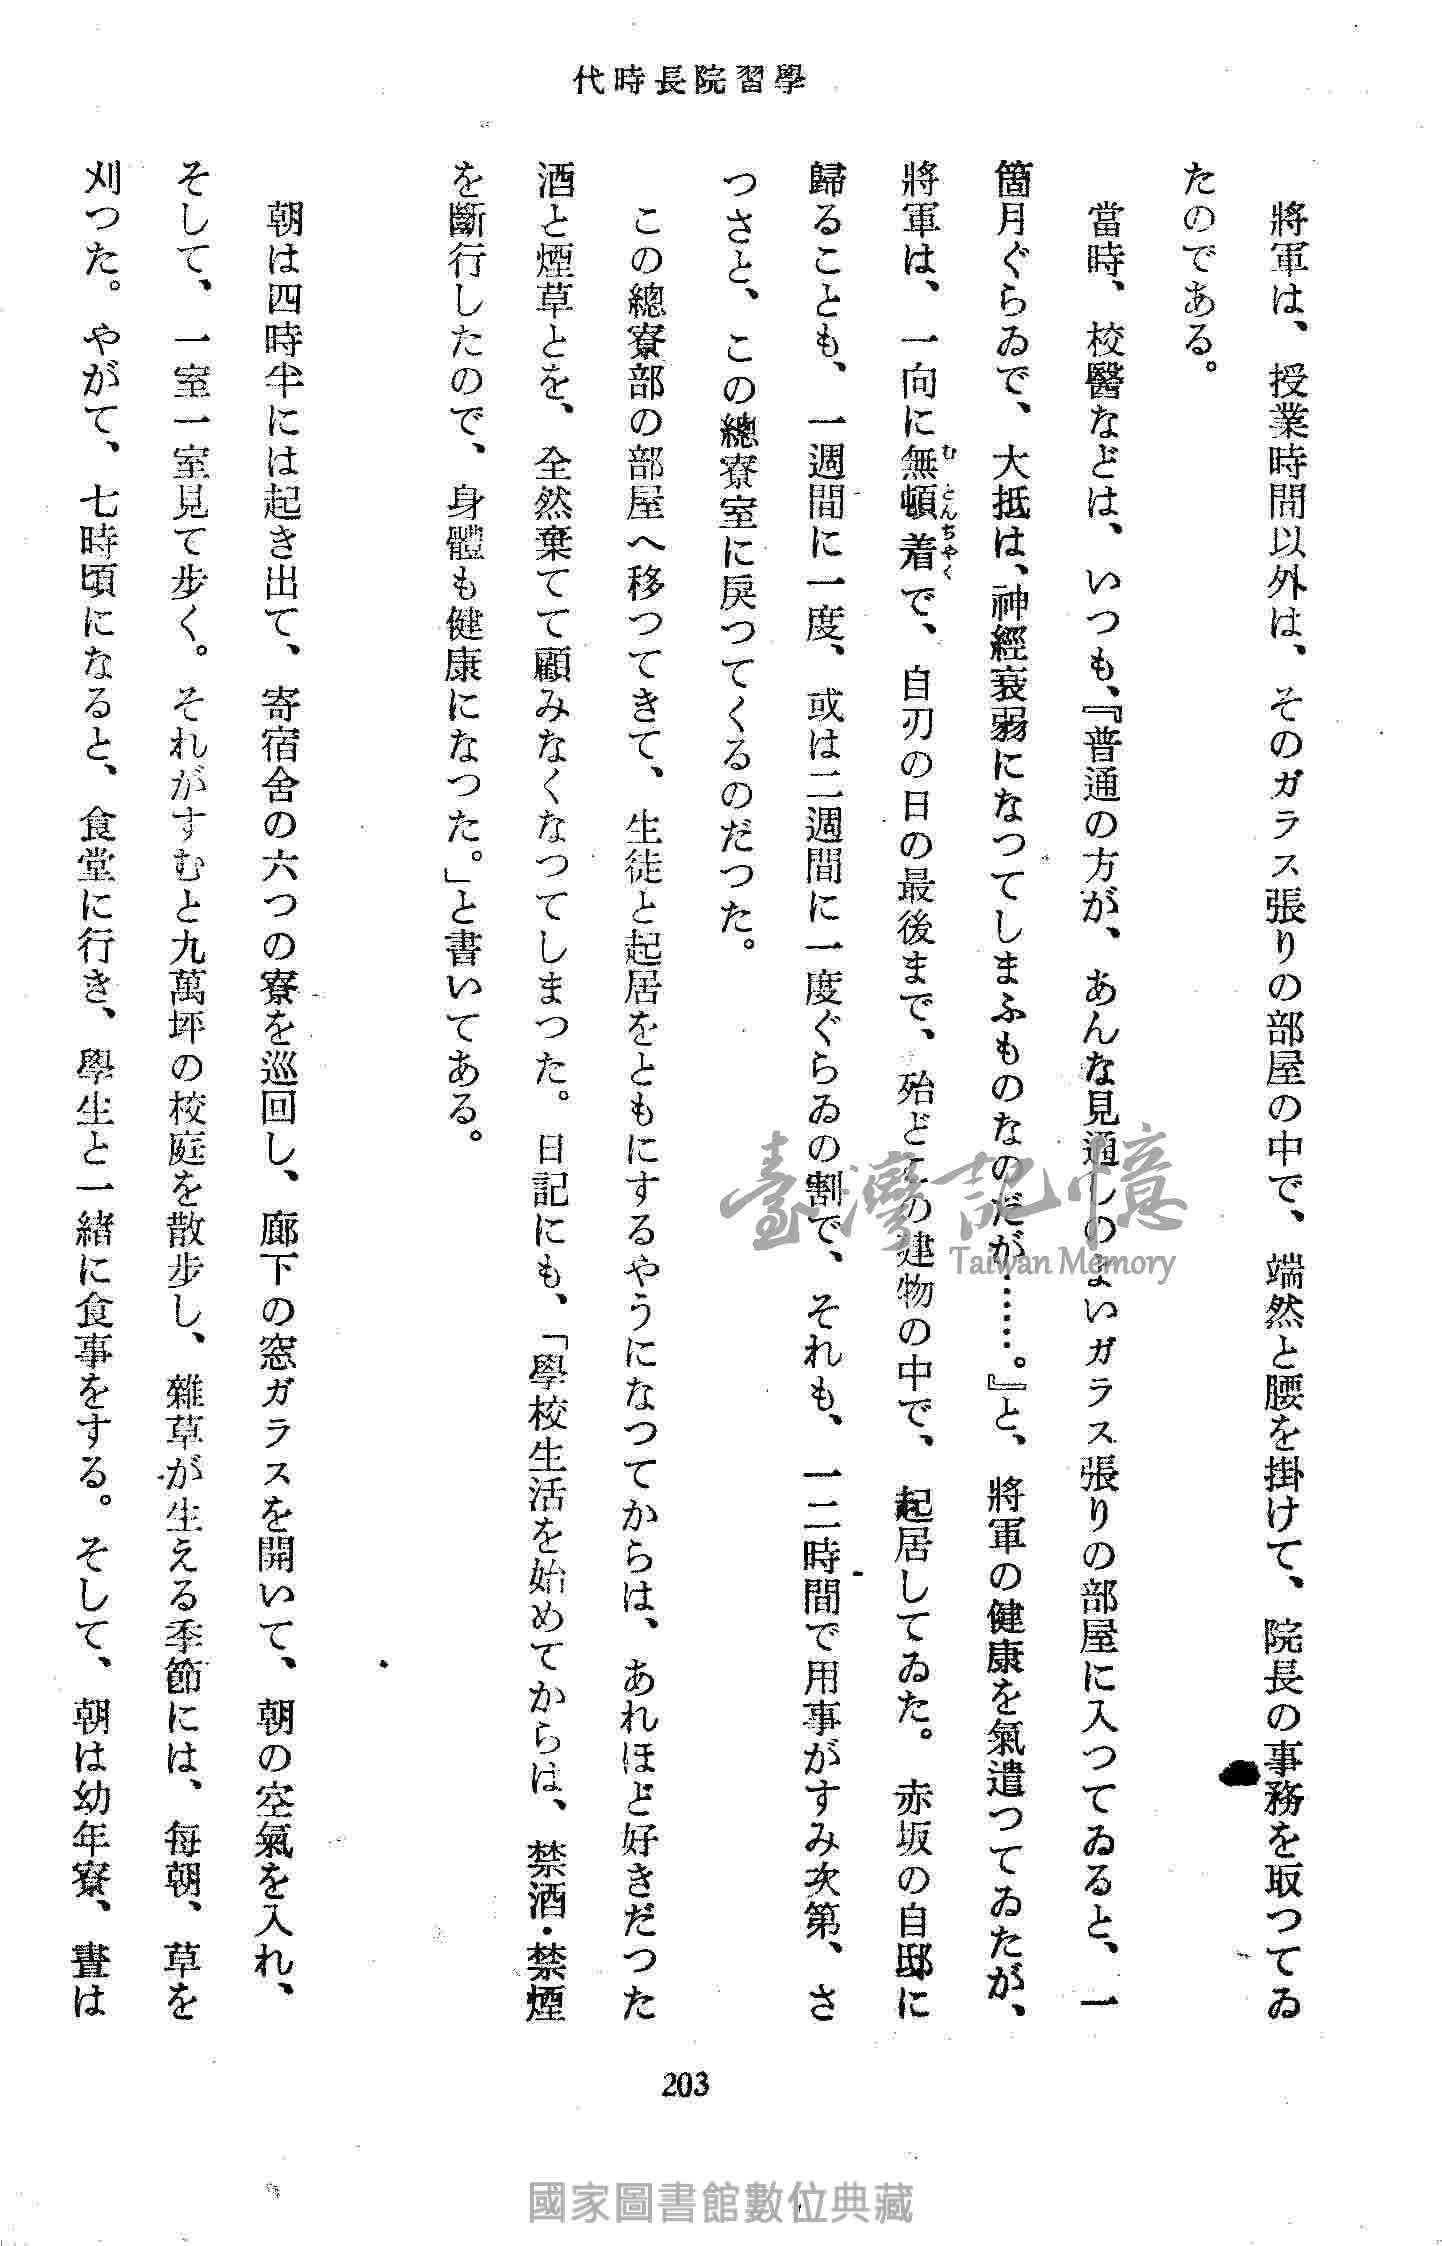 代時長院習學
將軍は、授業時間以外は、そのガラス張りの部屋の中で、端然と腰を掛けて、院長の事務を取つてゐ
たのである。
當時、校醫などは、いつも、『普通の方が、あんな見通しのよいガラス張りの部屋に入つてゐると、一
箇月ぐらゐで、大抵は、神經衰弱になつてしまふものなのだが……。』と、將軍の健康を氣遣つてゐたが、
將軍は、一向に無頓着で、自刃の日の最後まで、殆どこの建物の中で、起居してゐた。赤坂の自邸に
むとんちやく
歸ることも、一週間に一度、或は二週間に一度ぐらゐの割で、それも、一二時間で用事がすみ次第、さ
つさと、この總寮室に戻つてくるのだつた。
この總寮部の部屋へ移つてきて、生徒と起居をともにするやうになつてからは、あれほど好きだつた
酒と煙草とを、全然棄てて顧みなくなつてしまつた。日記にも、「學校生活を始めてからは、禁酒・禁煙
を斷行したので、身體も健康になつた。」と書いてある。
朝は四時半には起き出て、寄宿舍の六つの寮を巡回し、廊下の窓ガラスを開いて、朝の空氣を入れ、
そして、一室一室見て步く。それがすむと九萬坪の校庭を散步し、雜草が生える季節には、每朝、草を
刈つた。やがて、七時頃になると、食堂に行き、學生と一緒に食事をする。そして、朝は幼年寮、晝は
203
臺灣記憶
Taiwan Memory
國家圖書館數位典藏